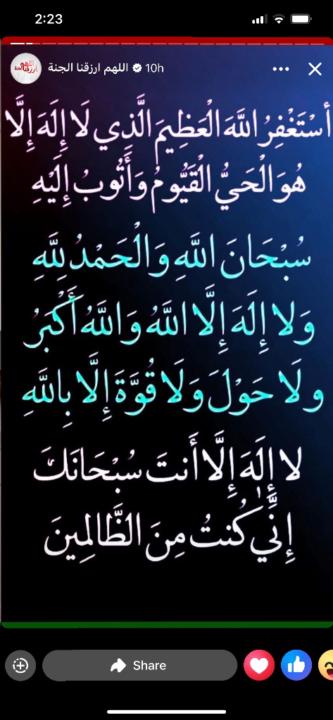 2:23
اللهم ارزقنا الجنة 10h
أَسْتَغْفِرُ اللَّهَ الْعَظِيمَ الَّذِي لَا إِلَهَ إِلَّا
هُوَ الْحَيُّ الْقَيُّومُ وَأَتُوبُ إِلَيْهِ
سُبْحَانَ اللَّهِ وَالْحَمْدُ لِلَّهِ
وَلَا إِلَهَ إِلَّا اللَّهُ وَاللَّهُ أَكْبَرُ
وَلَا حَوْلَ وَلَا قُوَّةَ إِلَّا بِاللَّهِ
لَا إِلَٰهَ إِلَّا أَنتَ سُبْحَانَكَ
إِنِّي كُنتُ مِنَ الظَّالِمِينَ
Share